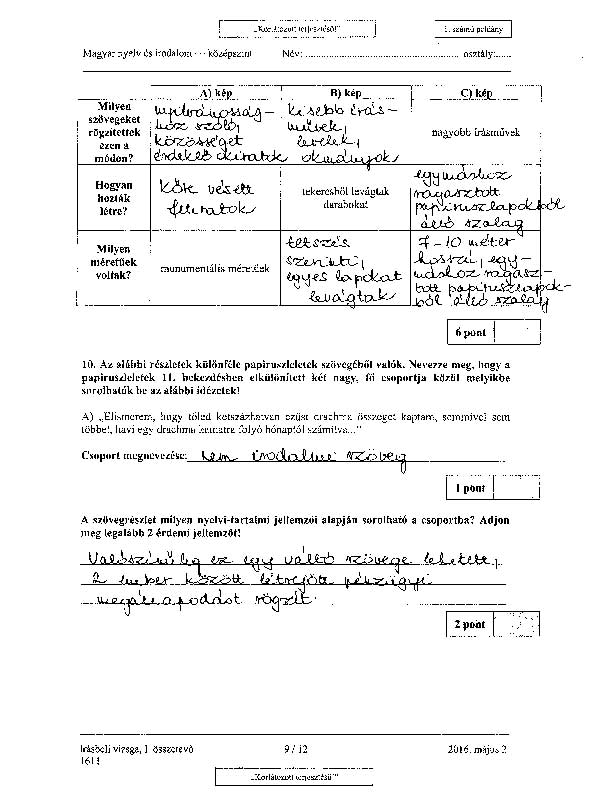 „Korlátozott terjesztésű!”
1. számú példány
Magyar nyelv és irodalom — középszint Név: ........................................................... osztály:......
A) kép B) kép C) kép
Milyen szövegeket rögzítettek ezen a módon?
nyilvánosság-
hoz szóló,
közösséget
érdeklő okiratok
kisebb írás-
művek,
levelek,
okmányok
nagyobb írásművek
Hogyan hozták létre?
kőbe vésett
feliratok
tekercsből levágtak
darabokat
egymáshoz
ragasztott
papiruszlapokból
álló szalag
Milyen méretűek voltak?
monumentális méretűek
tetszés
szerinti,
egyes lapokat
levágtak
7-10 méter
hosszú, egy-
máshoz ragasz-
tott papiruszlapok-
ból álló szalag
6 pont
10. Az alábbi részletek különféle papiruszleletek szövegéből valók. Nevezze meg, hogy a
papiruszleletek 11. bekezdésben elkülönített két nagy, fő csoportja közül melyikbe
sorolhatók be az alábbi idézetek!
A) „Elismerem, hogy tőled kétszázhatvan ezüst drachma összeget kaptam, semmivel sem
többet, havi egy drachma kamatra folyó hónaptól számítva...”
Csoport megnevezése: nem irodalmi szöveg
1 pont
A szövegrészlet milyen nyelvi-tartalmi jellemzői alapján sorolható a csoportba? Adjon
meg legalább 2 érdemi jellemzőt!
Valószínűleg ez egy váltó szövege lehetett,
2 ember között létrejött pénzügyi
megállapodást rögzít.
2 pont
írásbeli vizsga, I. összetevő 9 / 12 2016. május 2.
1611
„Korlátozott terjesztésű!”